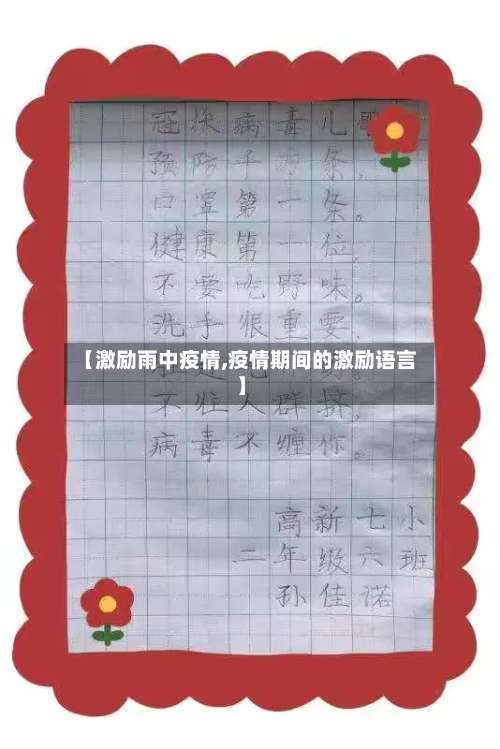 冠状病毒儿
预防 条,
口罩第一条。
健康第一位,
不要吃野味。
洗手很重要,
【激励雨中疫情,疫情期间的激励语言
】
不往人群挤,
病毒不缠你。
高新七小
二年级六班
孙佳诺